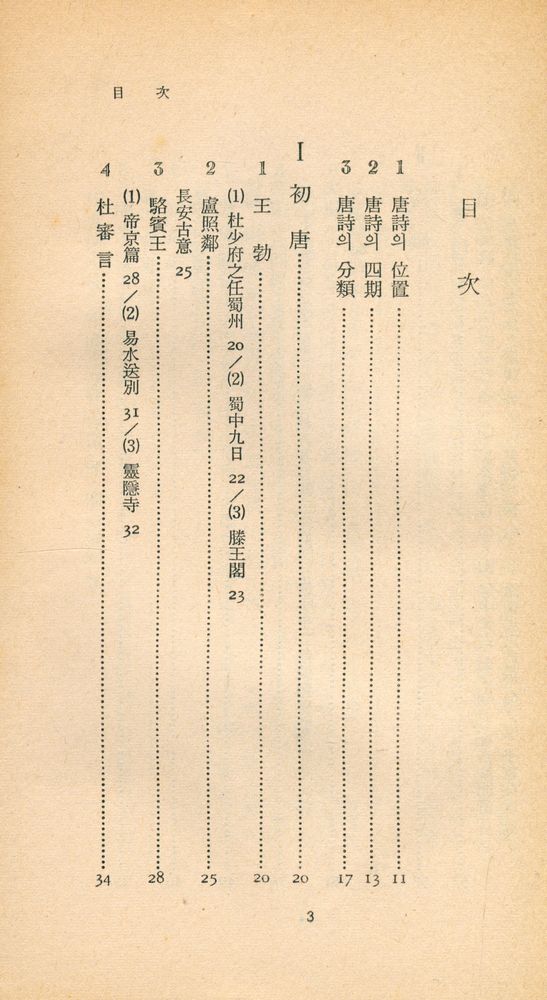 目 次
目 次
1 唐詩의 位置 11
2 唐詩의 四期 13
3 唐詩의 分類 17
I 初 唐 20
1 王 勃 20
(1) 杜少府之任蜀州 20/(2) 蜀中九日 22/(3) 滕王閣 23
2 盧照鄰 25
長安古意 25
3 駱賓王 28
(1) 帝京篇 28/(2) 易水送別 31/(3) 靈隱寺 32
4 杜審言 34
3